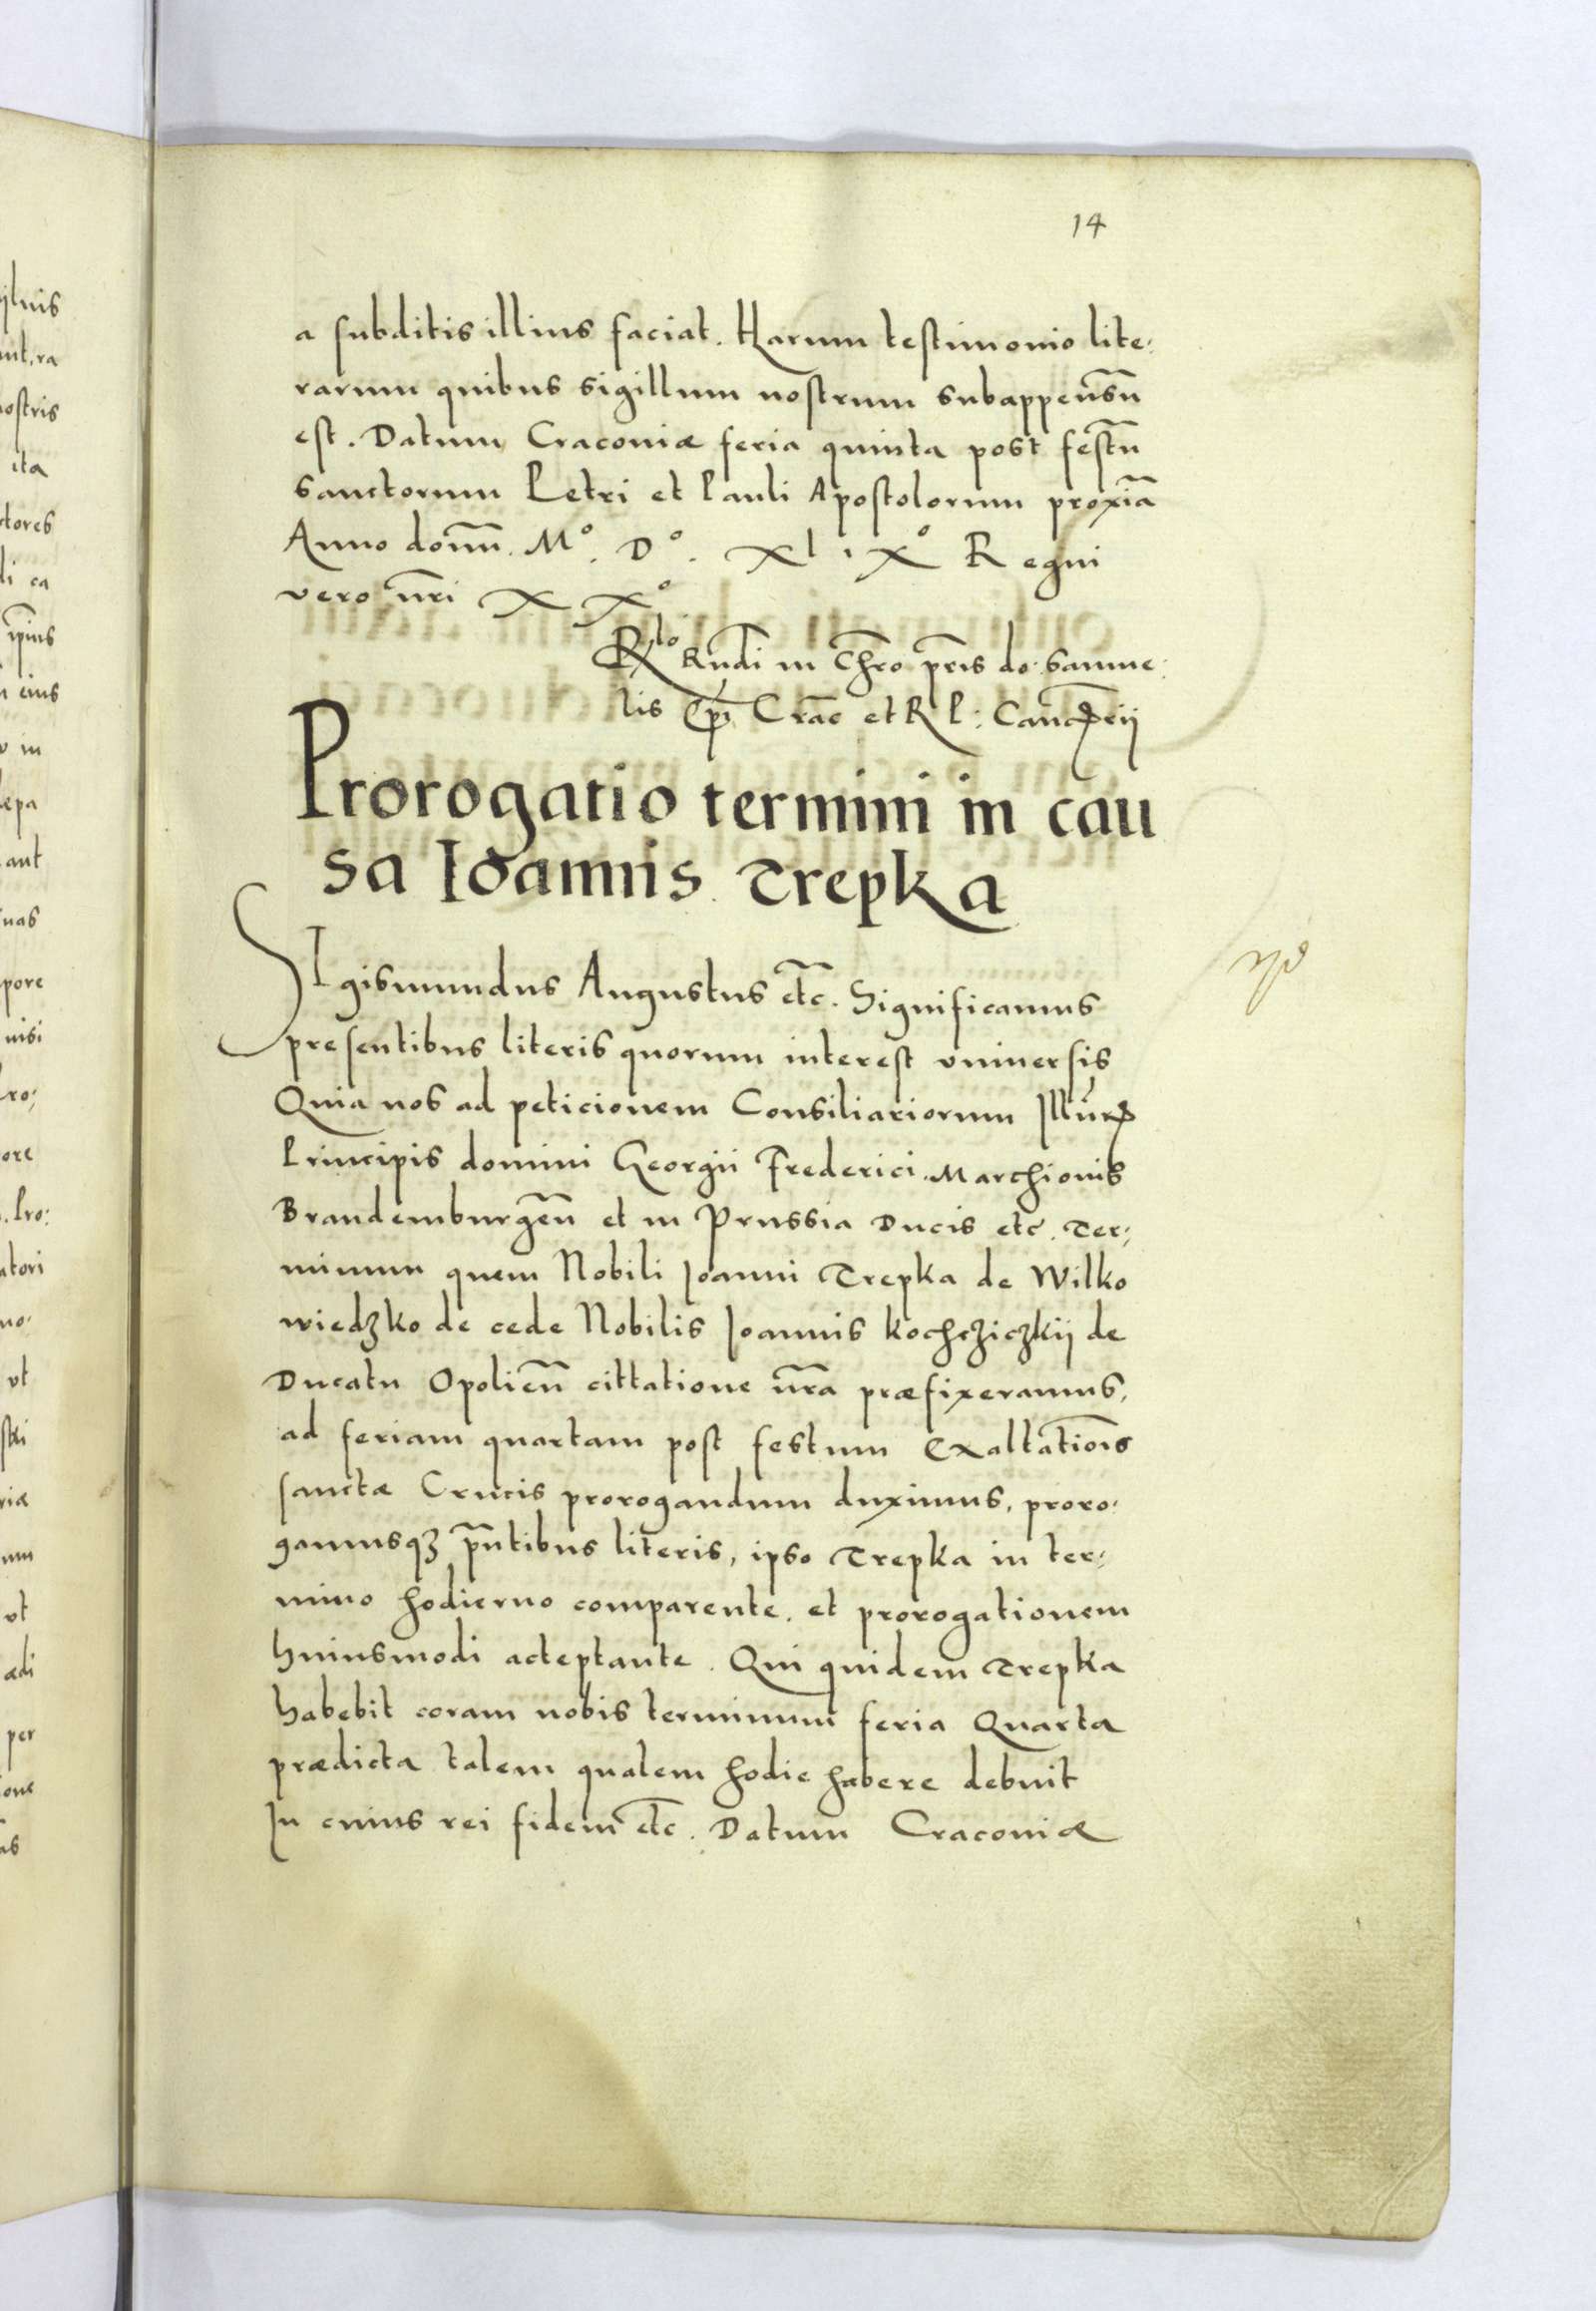 14
a subditis illius faciat. Harum testimonio lite:
rarum quibus sigillum nostrum subappensũ
est. Datum Cracoviæ feria quinta post festũ
sanctorum Petri et Pauli Apostolorum proxiã
Anno domñ. Mº. Dº. XlıXº Regni
vero nr̃i XXº
Rlo Rnđi in Chr̃o pr̃is do: Samue:
lis Ep̃i Crac̃ et R P: Cancrii
Prorogatio termini in cau
sa Ioannis Trepka
SIgismundus Augustus etc̃. Significamus
presentibus literis quorum interest universis
Quia nos ad peticionem Consiliariorum Illũ
Principis domini Georgii Frederici Marchionis
Brandemburgeñ et in Prussia Ducis etc. Ter:
minum quem Nobili Joanni Trepka de Wilko
wiedzko de cede Nobilis Joannis Kochcziczkij de
Ducatu Opolieñ cittatione nr̃a præfixeramus,
ad feriam quartam post festum Exaltatiõis
sanctæ Crucis prorogandum duximus, proro:
gamusqȝ pñtibus literis, ipso Trepka in ter:
mino hodierno comparente, et prorogationem
huiusmodi acteptante. Qui quidem Trepka
habebit coram nobis terminum feria Quarta
prædicta talem qualem hodie habere debuit
In cuius rei fidem etc̃. Datum Cracoviæ